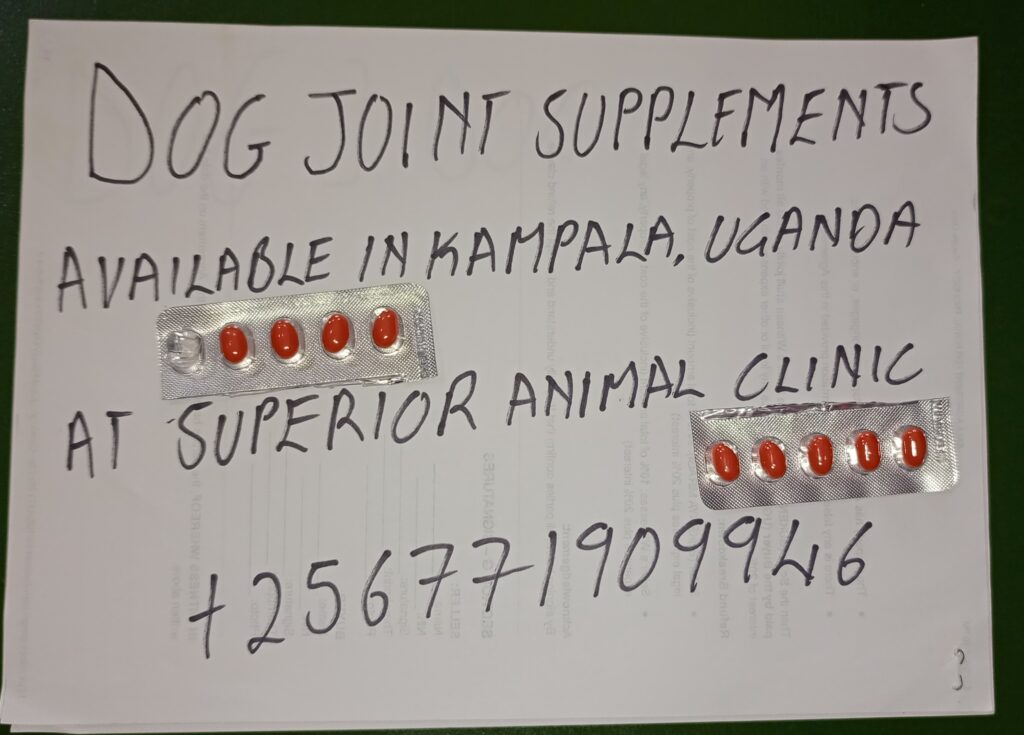 DOG JOINT SUPPLEMENTS
AVAILABLE IN KAMPALA, UGANDA
AT SUPERIOR ANIMAL CLINIC
+256771909946